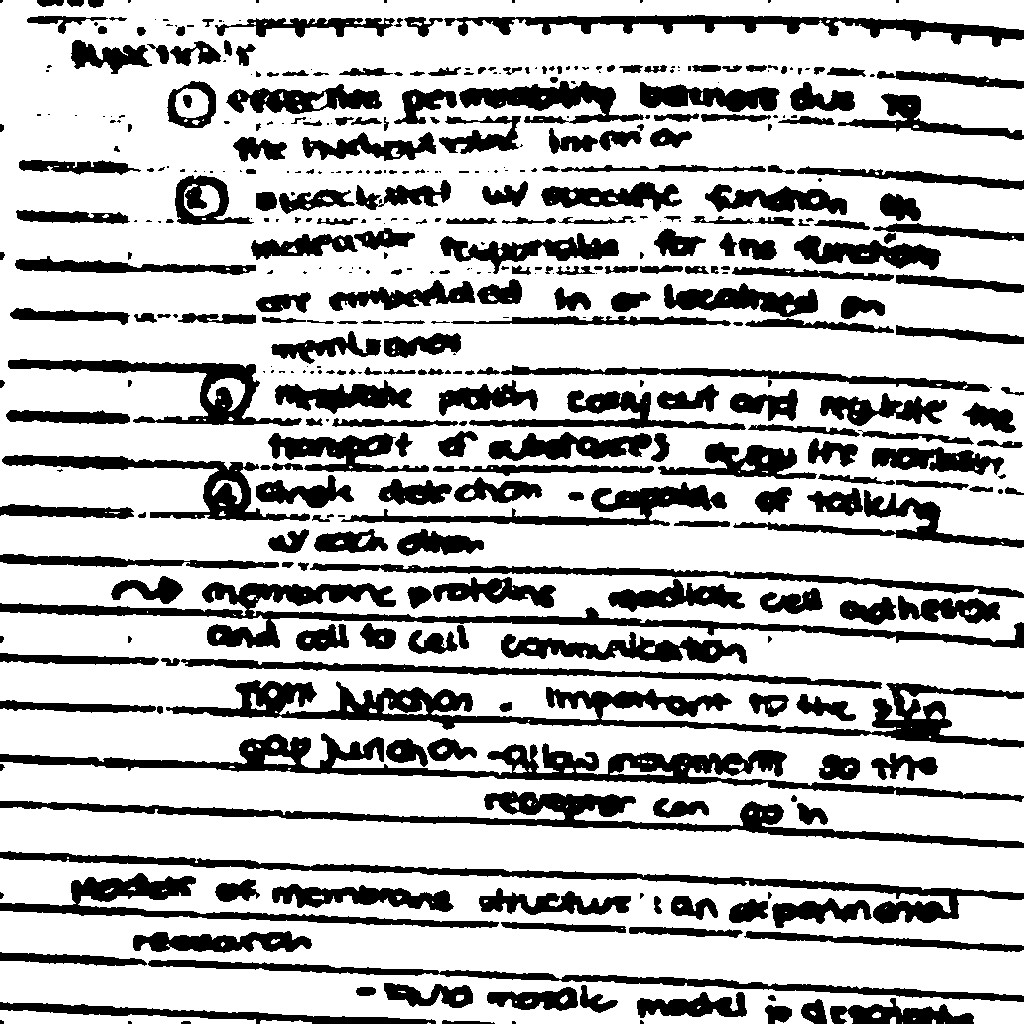 ① effective permeability barriers due to
the interior
② w/ specific function as
molecular responsible for the function
are embedded in or localized on
membranes
③ membrane protein carry out and regulate the
transport of substances the membrane
④ signal detection - capable of talking
w/ each other
membrane proteins, mediate cell adhesion
and cell to cell communication
Tight junction. important to the skin
gap junction - allow movement so the
receptor can go in
Models of membrane structure : an experimental
research
- Fluid mosaic model is